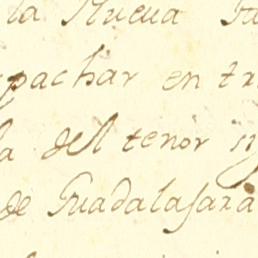 la Nueva
pachar en
del tenor
de Guadalaſara